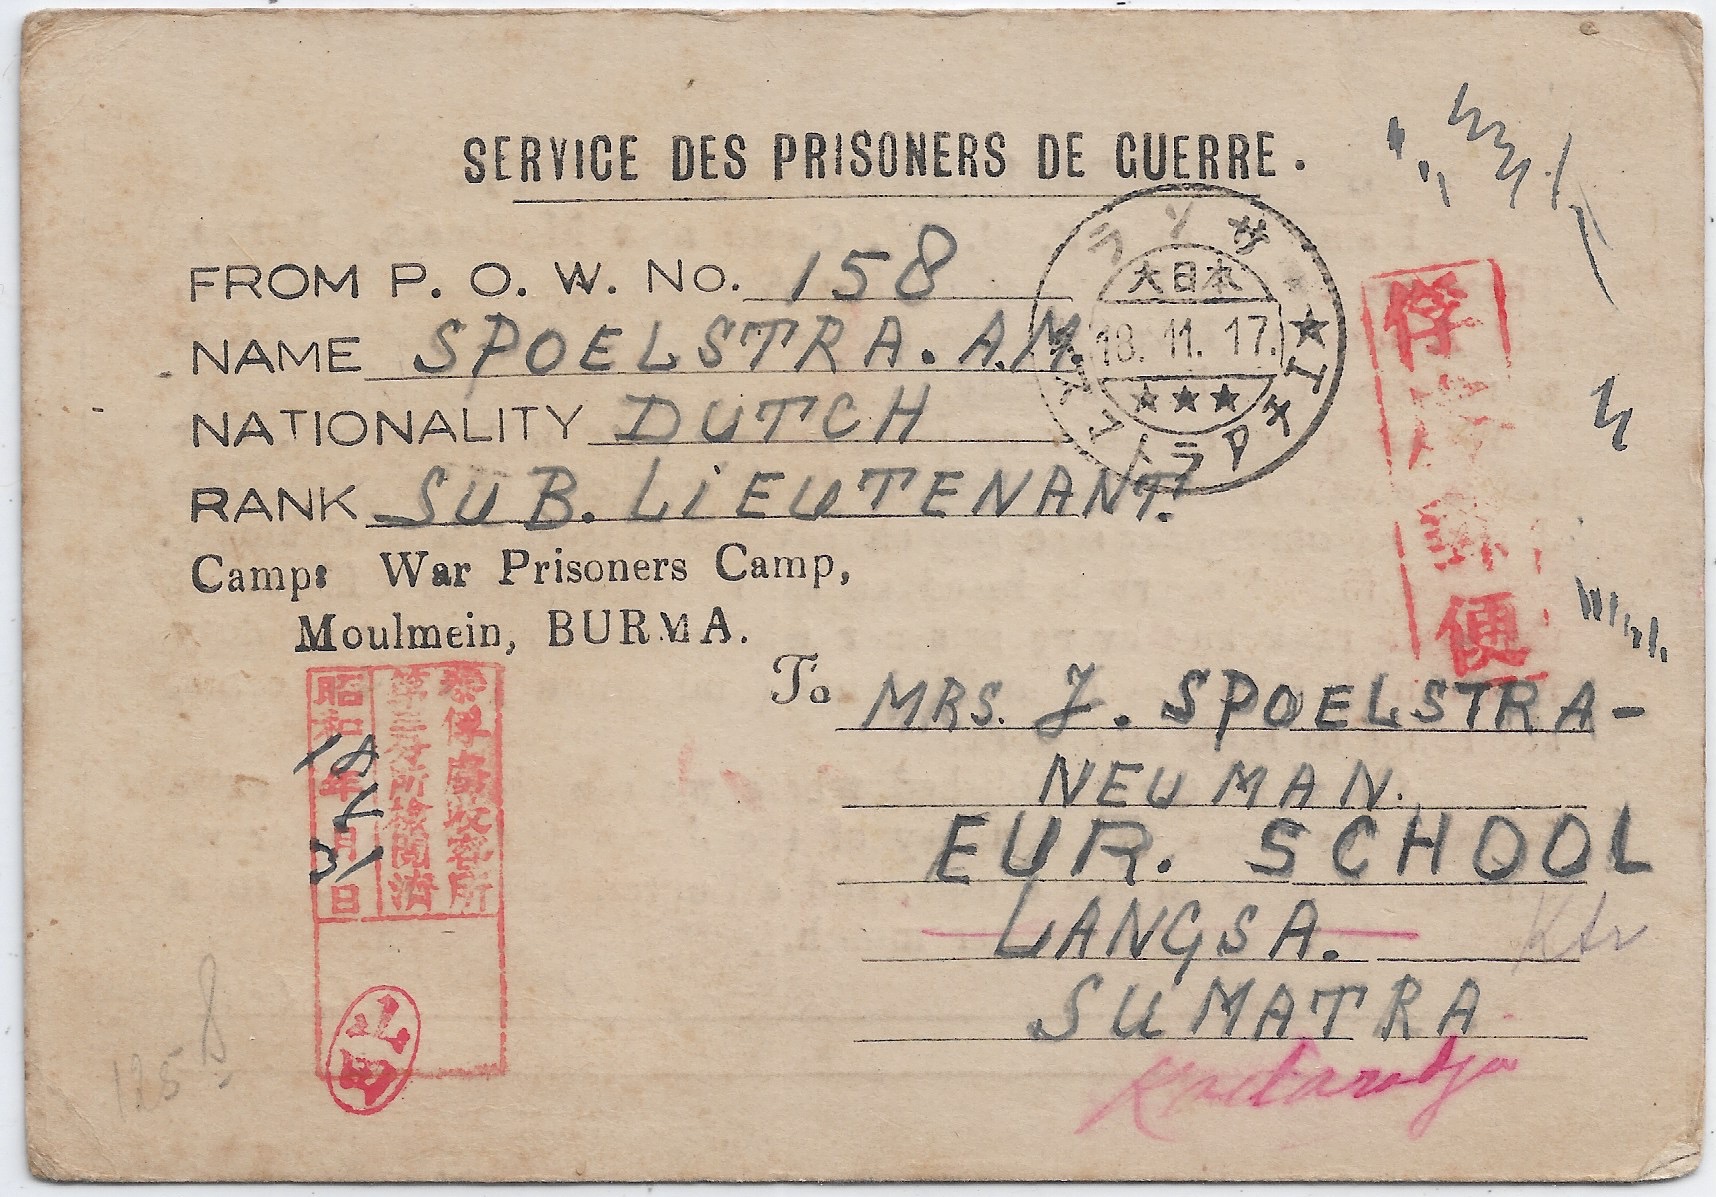 SERVICE DES PRISONERS DE GUERRE.
FROM P. O. W. No. 158
NAME SPOELSTRA. A.M.
NATIONALITY DUTCH
RANK SUB. LiEUTENANT.
Camp: War Prisoners Camp,
Moulmein, BURMA.
To MRS. J. SPOELSTRA-
NEUMAN.
EUR. SCHOOL
LANGSA.
SUMATRA
Koetaradja
ランサ
大日本
18. 11. 17.
★★★
俘虜郵便
泰俘虜收容所
第三分所検閲済
昭和年月日
山田
1258